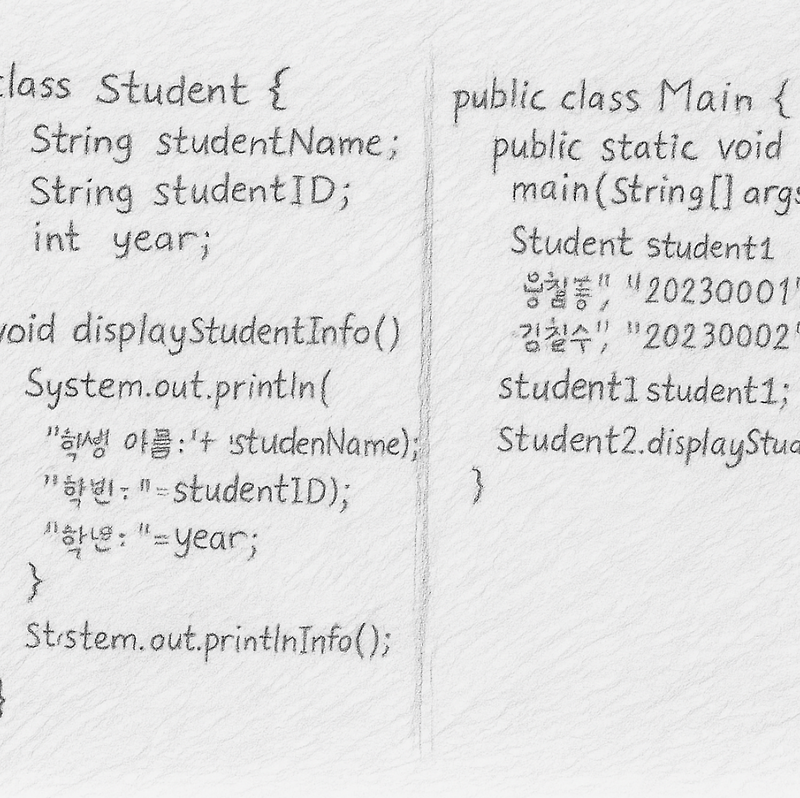 class Student {
String studentName;
String studentID;
int year;
void displayStudentInfo()
System.out.println(
"학생 아름:"+ studenName);
"학번: "=studentID);
"학년: "=year;
}
System.out.printlnInfo();
}
public class Main {
public static void
main(String[] args
Student student1
"20230001"
김칠수", "20230002"
student1 student1;
Student2.displayStud
}